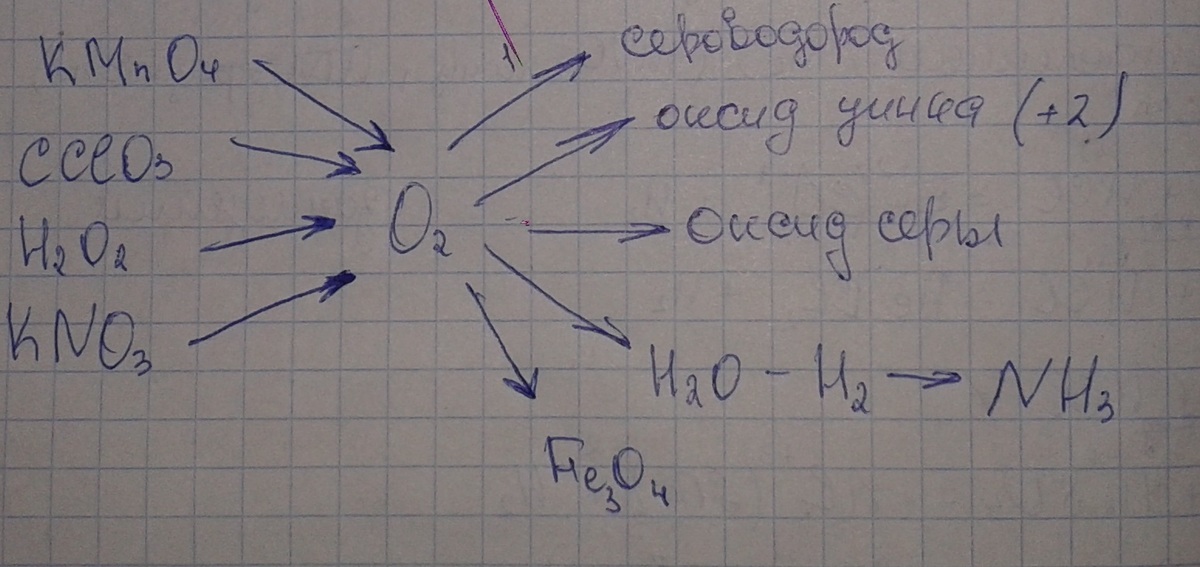 KMnO4
CClO3
H2O2
KNO3
O2
сероводород
оксид цинка (+2)
оксид серы
H2O - H2 → NH3
Fe3O4